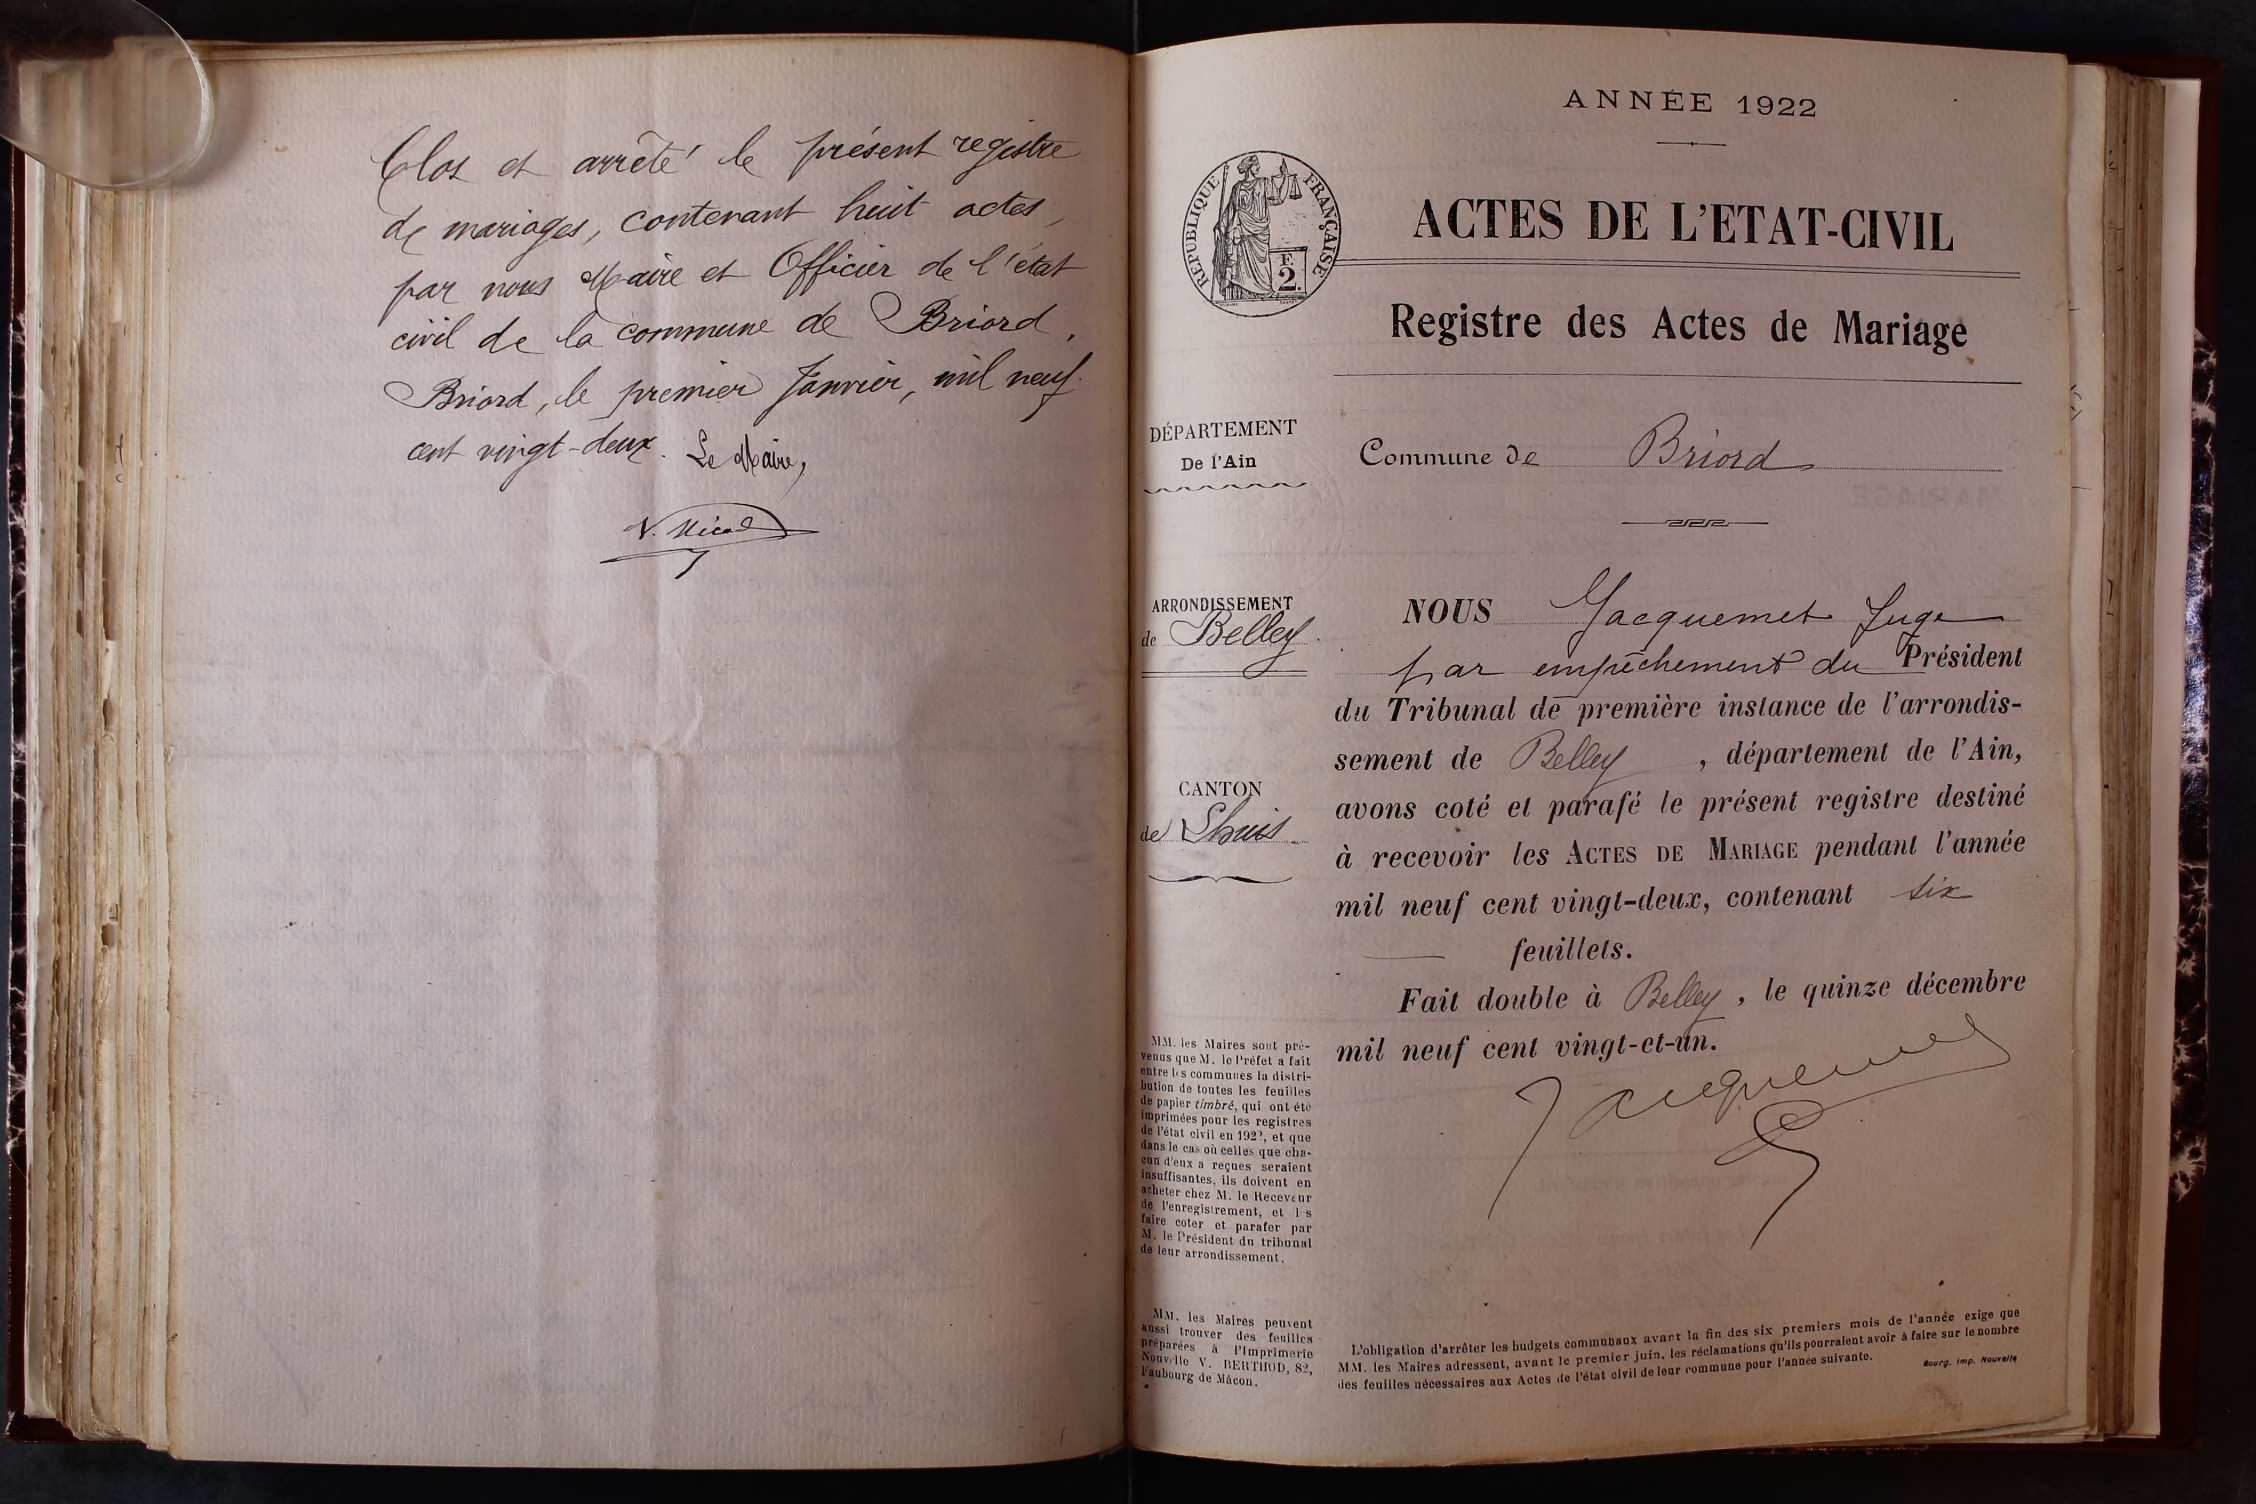 Clos et arrêté le présent registre
de mariages, contenant huit actes,
par nous Maire et Officier de l'état
civil de la commune de Briord.
Briord, le premier Janvier, mil neuf
cent vingt-deux. Le Maire,
ANNÉE 1922
RÉPUBLIQUE FRANÇAISE
F.
2.
ACTES DE L'ETAT-CIVIL
Registre des Actes de Mariage
DÉPARTEMENT
De l'Ain
Commune de Briord
ARRONDISSEMENT
de Belley
CANTON
de Lhuis
NOUS Jacquemet Juge
par empêchement du Président
du Tribunal de première instance de l'arrondis-
sement de Belley, département de l'Ain,
avons coté et parafé le présent registre destiné
à recevoir les ACTES DE MARIAGE pendant l'année
mil neuf cent vingt-deux, contenant six
feuillets.
Fait double à Belley, le quinze décembre
mil neuf cent vingt-et-un.
Jacquemet
MM. les Maires sont pré-
venus que M. le Préfet a fait
entre les communes la distri-
bution de toutes les feuilles
de papier timbré, qui ont été
imprimées pour les registres
de l'état civil en 1922, et que
dans le cas où celles que cha-
cun d'eux a reçues seraient
insuffisantes, ils doivent en
acheter chez M. le Receveur
de l'enregistrement, et les
faire coter et parafer par
M. le Président du tribunal
de leur arrondissement.
MM. les Maires peuvent
aussi trouver des feuilles
préparées à l'Imprimerie
Nouvelle V. BERTHOD, 82,
Faubourg de Mâcon.
L'obligation d'arrêter les budgets communaux avant la fin des six premiers mois de l'année exige que
MM. les Maires adressent, avant le premier juin, les réclamations qu'ils pourraient avoir à faire sur le nombre
des feuilles nécessaires aux Actes de l'état civil de leur commune pour l'année suivante.
Bourg, Imp. Nouvelle